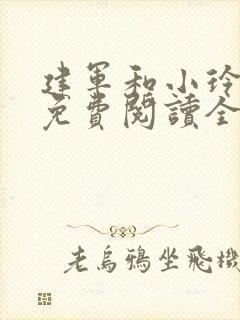 建軍和小玲
免費閱讀全
老烏鴉坐飛機